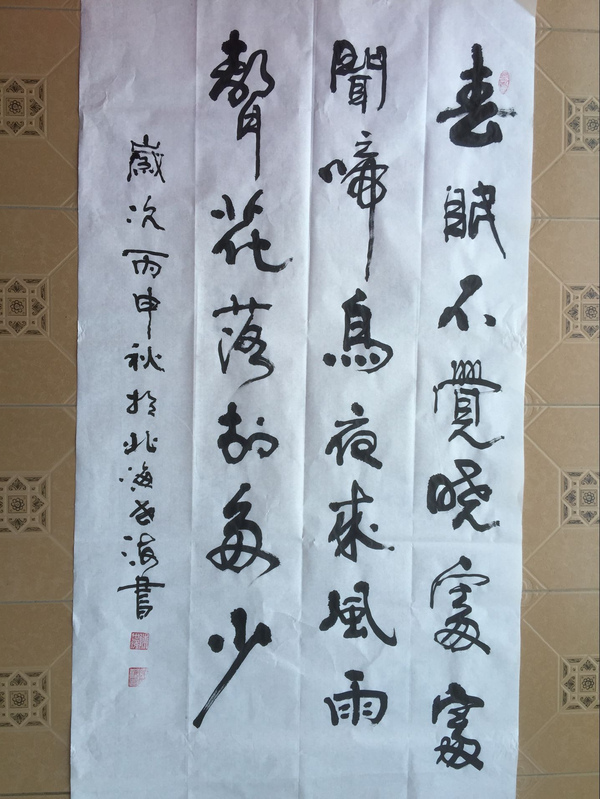 春眠不覺晓處處
聞啼鳥夜來風雨
聲花落知多少
歲次丙申秋於北海海書